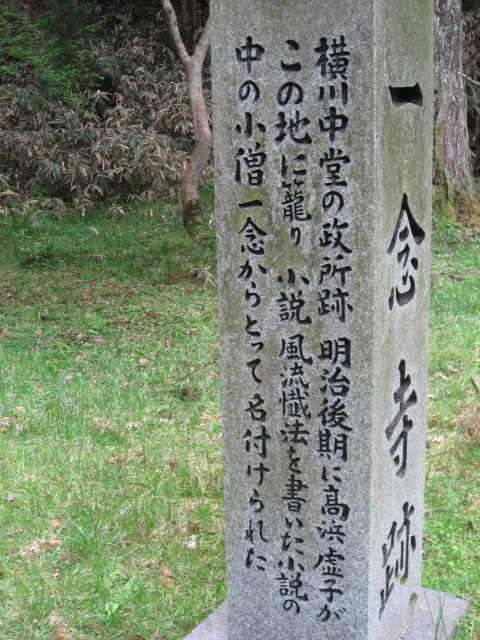 一念寺跡
横川中堂の政所跡 明治後期に高浜虚子が
この地に籠り 小説 風流懺法を書いた小説の
中の小僧一念からとって名付けられた